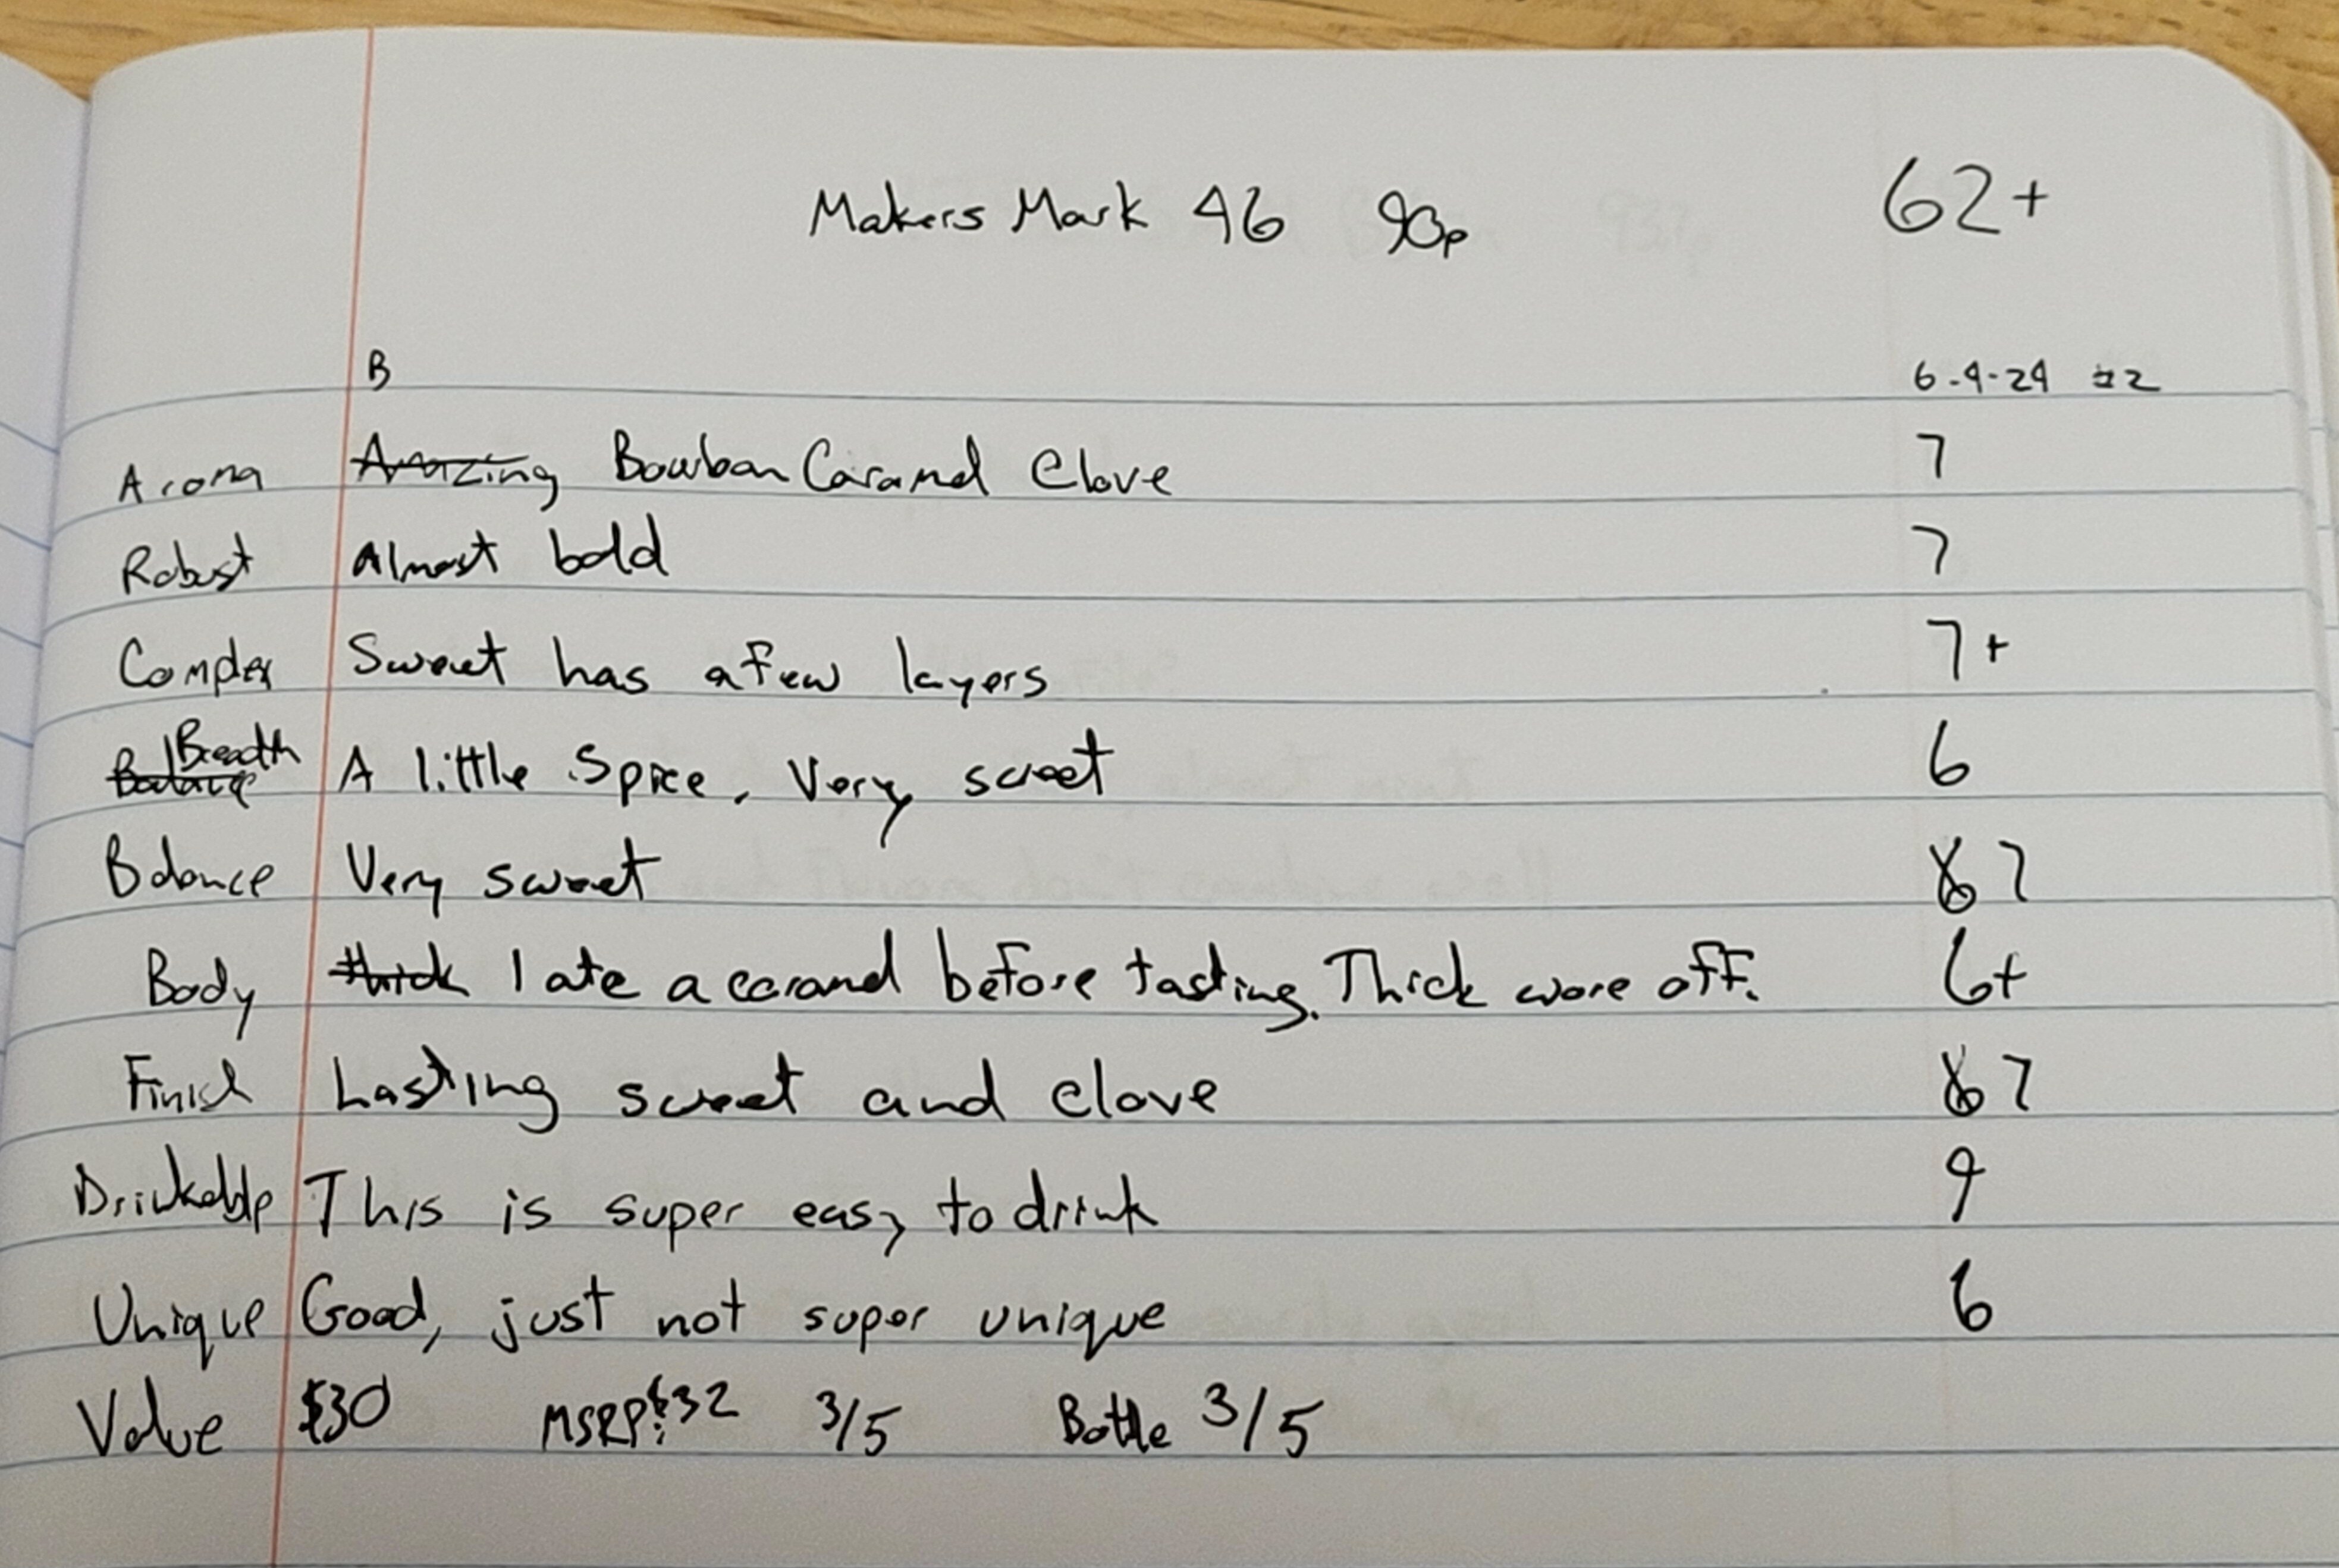 Makers Mark 46 90p 62+
B 6-4-24 #2
Aroma Amazing Bourbon Caramel Clove 7
Robust Almost bold 7
Complex Sweet has a few layers 7+
Balance Breadth A little Spice, Very sweet 6
Balance Very sweet 8 7
Body thick I ate a caramel before tasting. Thick wore off. 6+
Finish Lasting sweet and clove 8 7
Drinkable This is super easy to drink 9
Unique Good, just not super unique 6
Value $30 MSRP: $32 3/5 Bottle 3/5